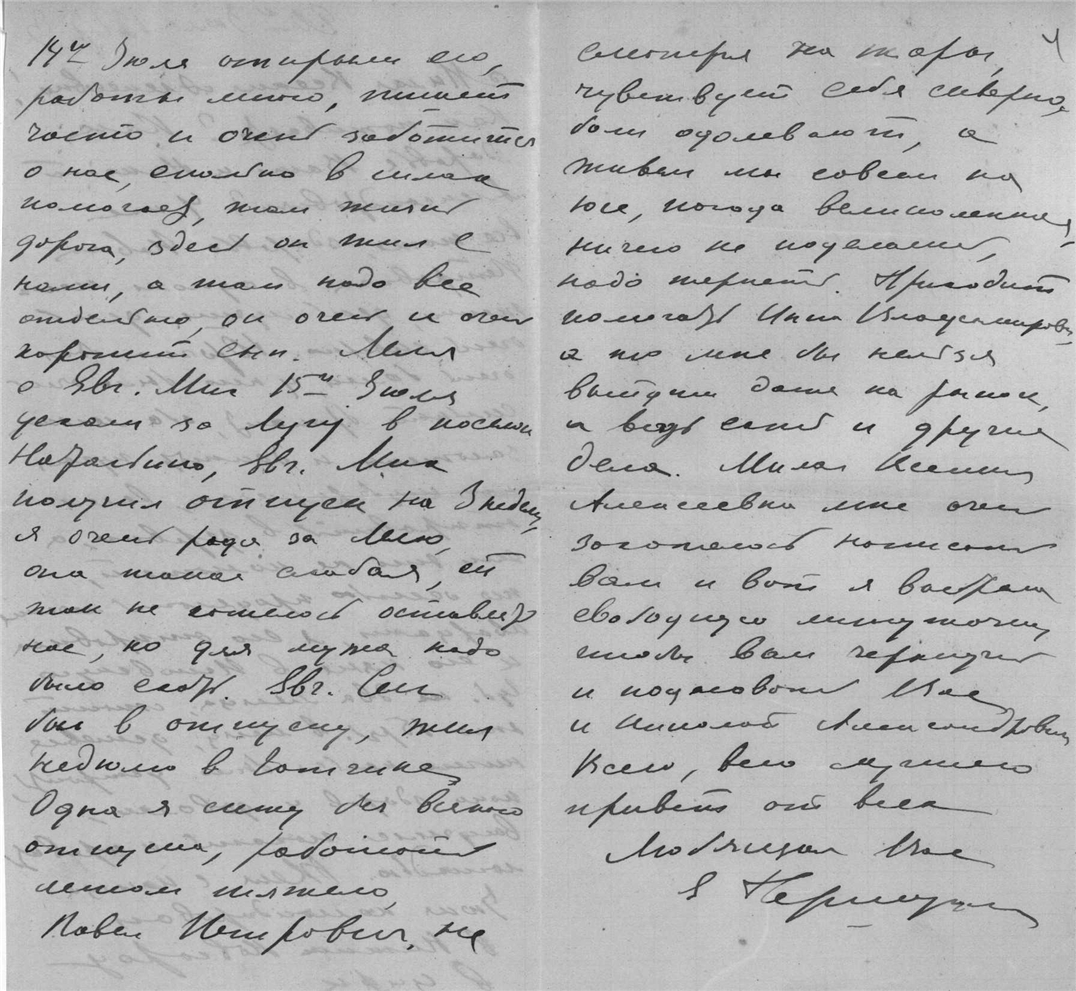 14го Июля открыли его,
работы много, пишет
часто и очень заботится
о нас, сколько в силах
помогает, там жизнь
дорога, здесь он жил с
нами, а там надо все
отдельно, он очень и очень
хороший сын. Миля
с Евг. Мих 15го Июля
уехали за Лугу в поселок
Натальино, Евг. Мих
получил отпуск на 3 недели,
я очень рада за Милю,
она такая слабая, ей
так не хотелось оставлять
нас, но для мужа надо
было ехать. Евг. Сем
был в отпуску, жил
неделю в Гатчине
Одна я сижу без всякого
отпуска, работать
летом тяжело,
Павел Петрович, не
смотря на жары,
чувствует себя скверно,
боли одолевают, а
живем мы совсем на
юге, погода великолепная,
ничего не поделаешь,
надо терпеть. Приходит
помогать Инна Владимировна,
а то мне бы нельзя
выйти даже на рынок,
а ведь есть и другие
дела. Милая Ксения
Алексеевна мне очень
захотелось написать
вам и вот я выбрала
свободную минуточку
чтобы вам черкнуть
и поцеловать Вас
и Николай Александровича
Всего, всего лучшего
привет от всех
Любящая Вас
Е